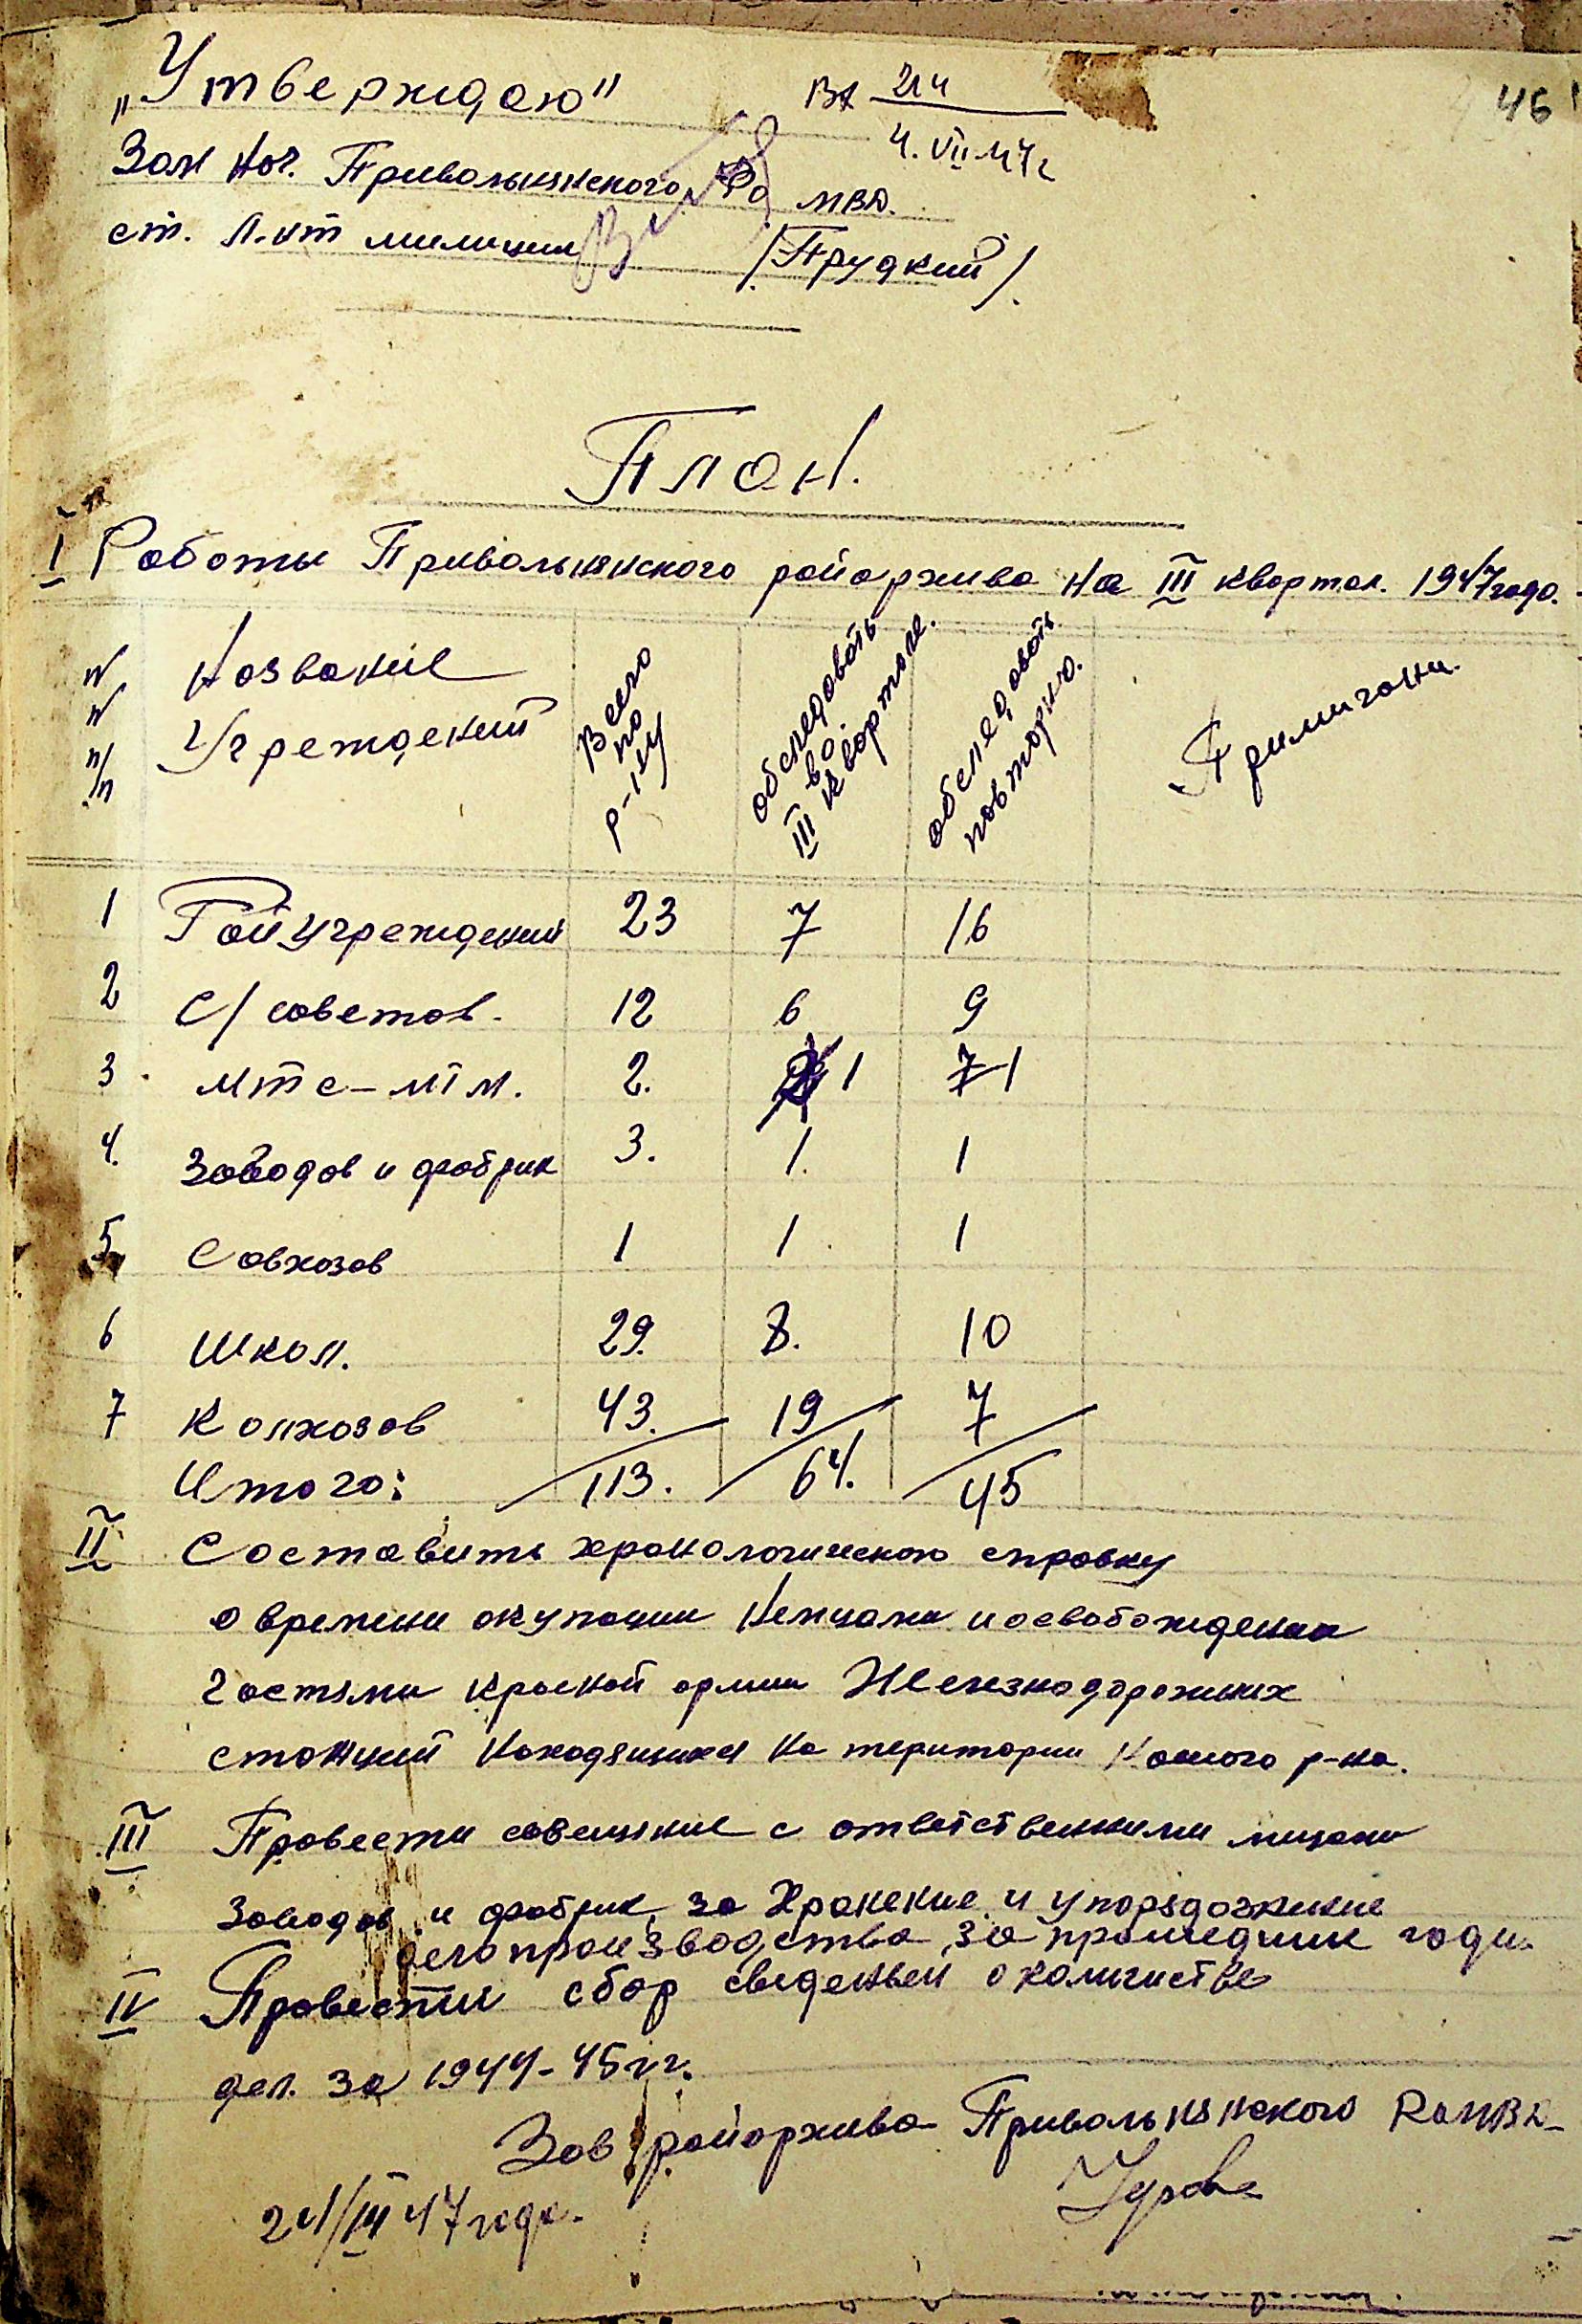 „Утверждаю"
Вх 214
4.VII.47г
46
Зам Нач. Привольнянского РО МВД.
ст. л-нт милиции /Прудкий/.
План.
I Работы Привольнянского райархива на III квартал. 1947 года.
N N п/п Название Учреждений Всего по р-ну обследовать во III квартале. обследовать повторно. Примичани.
1 Райучреждений 23 7 16
2 с/советов. 12 6 9
3 мтс-мтм. 2. 1 7 1
4. Заводов и фабрик 3. 1. 1
5 Совхозов 1 1. 1
6 Школ. 29. 8. 10
7 Колхозов 43. 19 7
Итого: 113. 64. 45
II Составить хронологическою справку
о времени окупации Немцами и освобождении
частями красной армии Железнодорожних
станций находящихся на територии нашого р-на.
III Провести совещяние с ответственними лицами
заводов и фабрик за Хранение и упорядочкение
делопроизводства за прошедшие годи.
IV Провести сбор сведеньеи о количистве
дел. за 1944-45 г.г.
Зав райархива Привольнянского РаМВД
24/III 47 года.